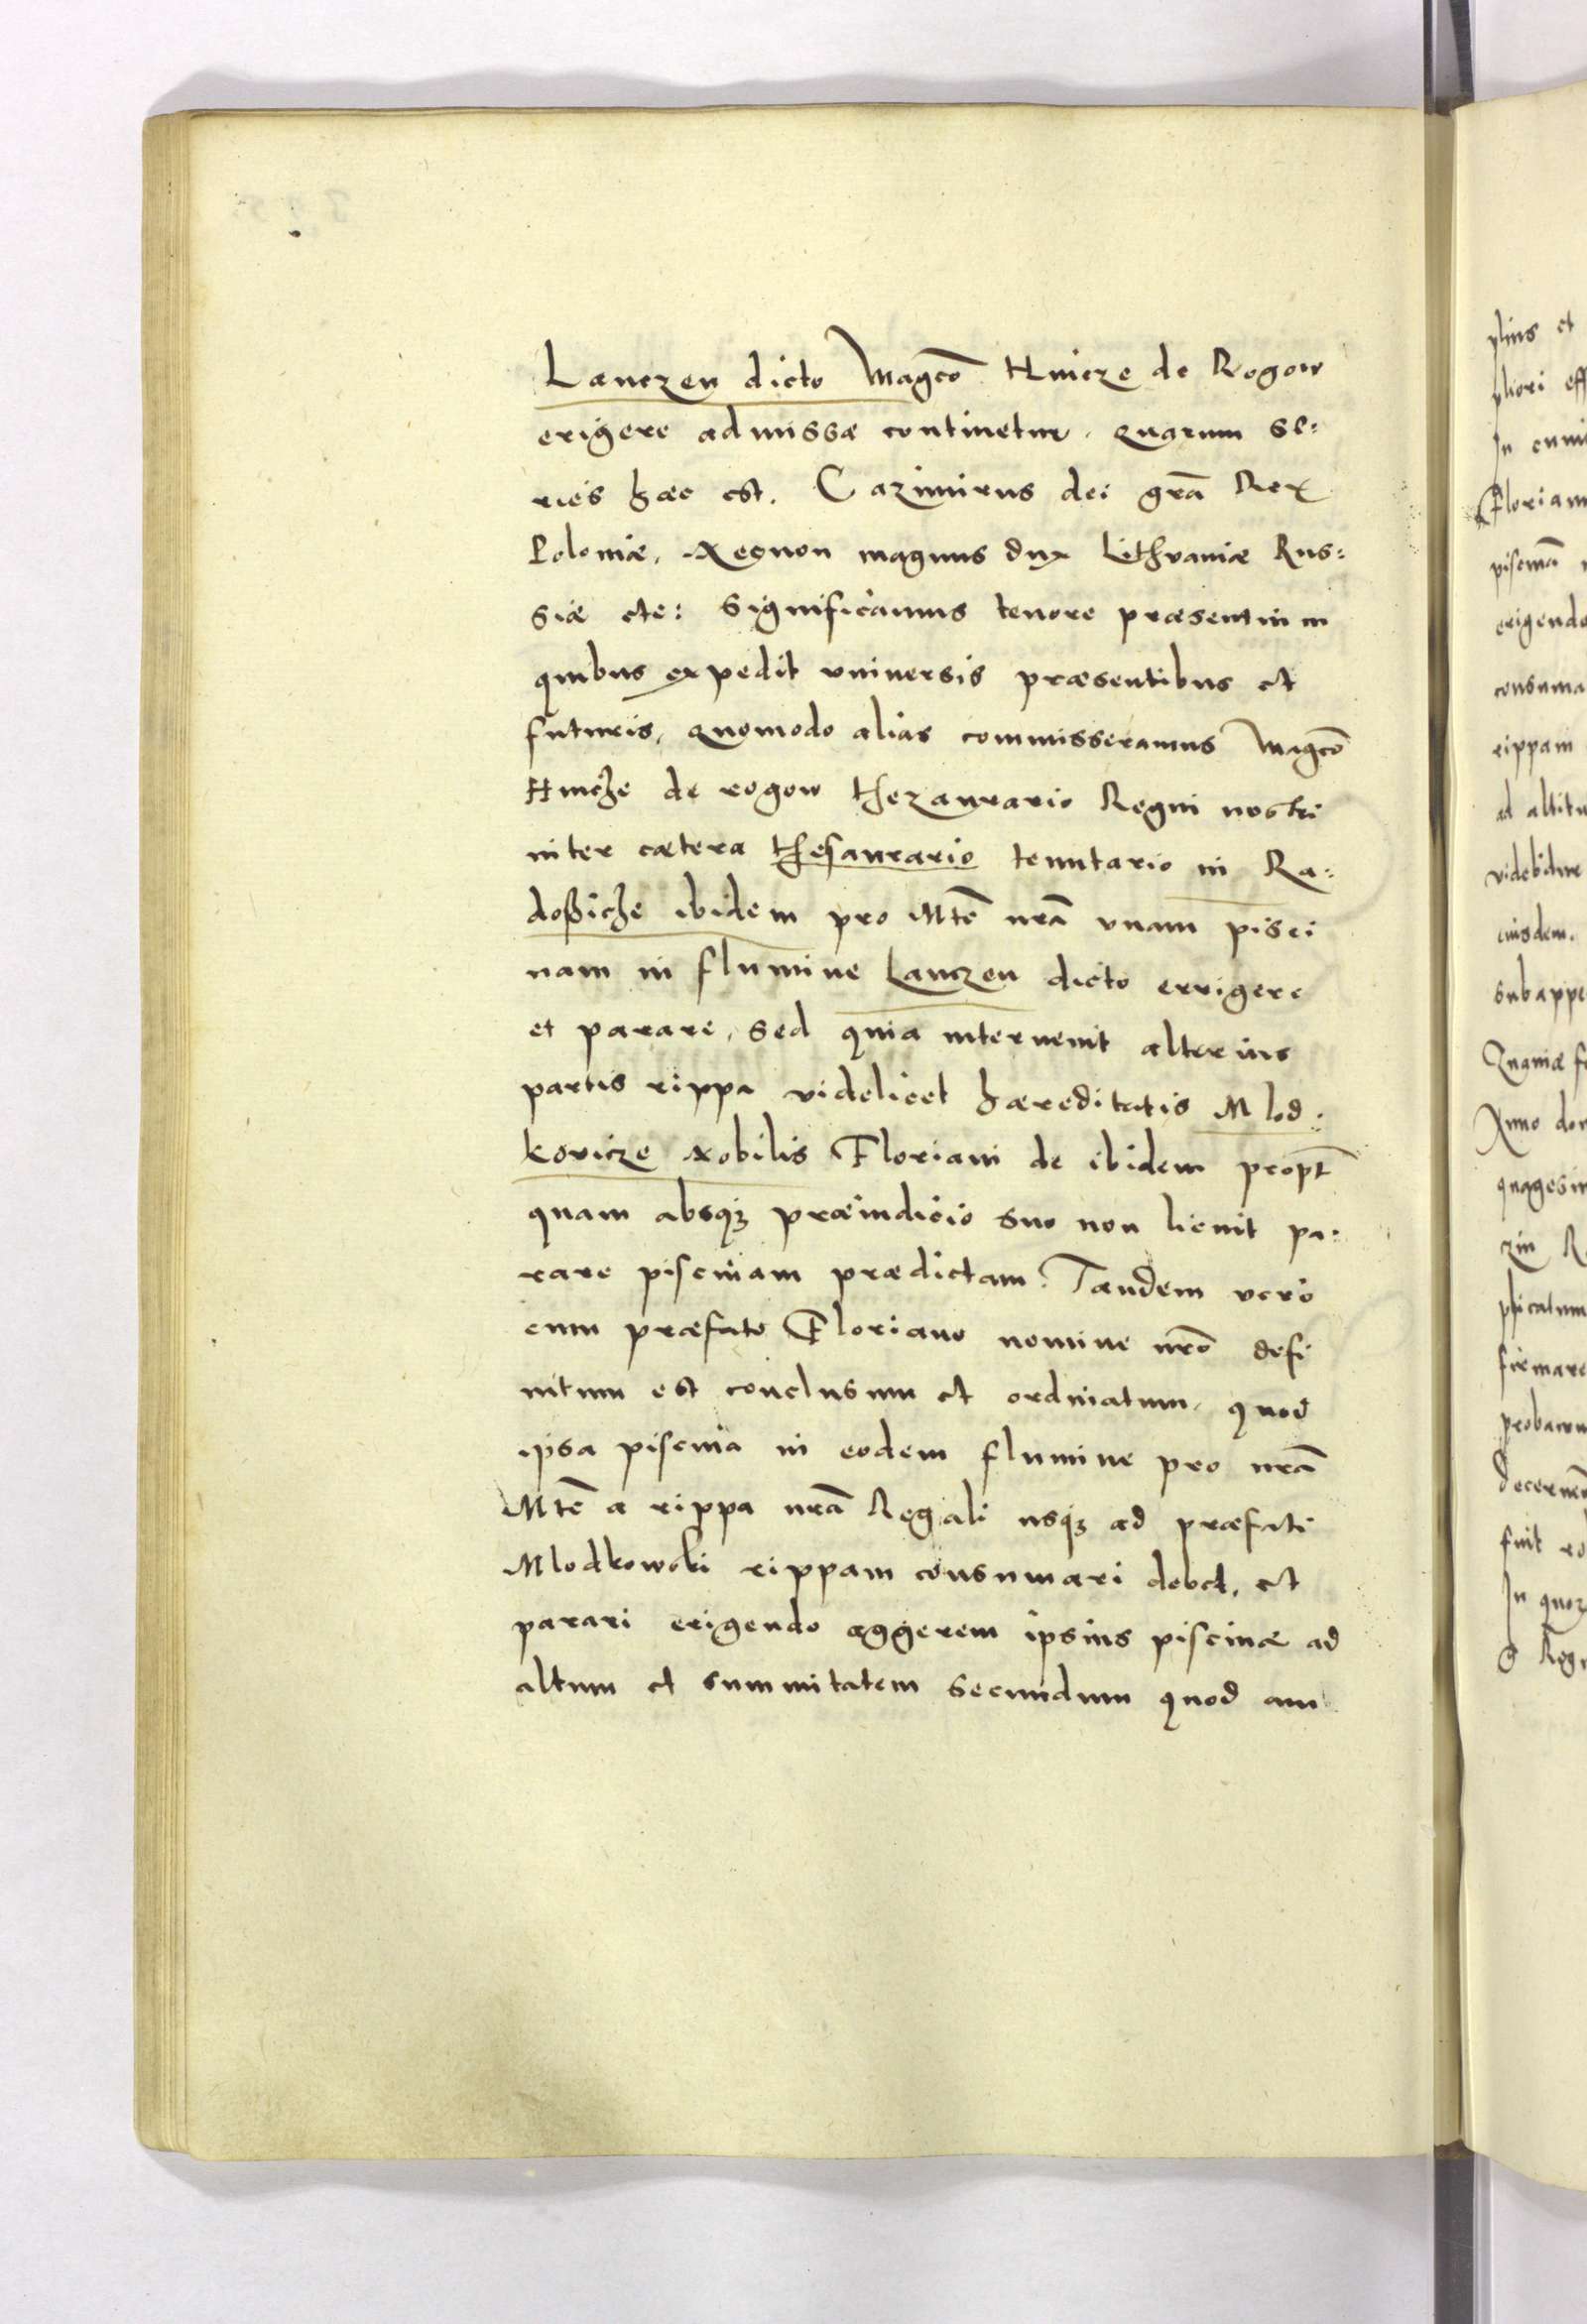 Lanczen dicto Magco᷃ Hincze de Rogow
erigere admissæ continetur, quarum se:
ries hæc est. Cazimirus dei gra᷃ Rex
Poloniæ, Necnon magnus dux Lithvaniæ Rus:
siæ etc: Significamus tenore præsentium
quibus expedit vniversis præsentibus et
futuris, quomodo alias commisseramus Magco᷃
Hincze de rogow thezaurario Regni nostri
inter cætera thesaurario tenutario in Ra:
doßicze ibidem pro Mte᷃ nra᷃ vnam pisci
nam in flumine Lanczen dicto errigere
et parare, sed quia intervenit alterius
partis rippa videlicet hæreditatis Mlod:
kovicze Nobilis Floriani de ibidem propt᷃
quam absqꝫ præiudicio suo non licuit pa:
rare piscinam prædictam. Tandem vero
cum præfato Floriano nomine nro᷃ defi
nitum est conclusum et ordinatum, quod
ipsa piscina in eodem flumine pro nra᷃
Mte᷃ a rippa nra᷃ Regali usqꝫ ad præfati
Mlodkowski rippam consumari debet, et
parari erigendo aggerem ipsius piscinæ ad
altum et summitatem secundum quod am
plius et
pliori eff
In
Florian
piscina᷃
erigendo
consuma
rippam
ad altitu
videbitur
eiusdem.
subappe
Anno do
quagesim
zin R
plicatum
firmare
probaru
fuit ro
In quor
Reg